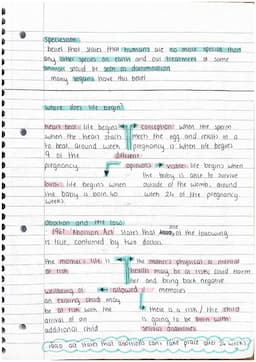 speciesism
belief that states that humans are no more special than
any other species on earth and our treatment of some
animals should be seen as discrimination
many vegans have this belief
where does life begin?
heart beat: life begins
when the heart starts
to beat, around week
4 of the
pregnancy.
conception: when the sperm
meet the egg and results in a
pregnancy is when life begins
different
opinions
viable: life begins when
the baby is able to survive
outside of the womb, around
week 24 of the pregnancy.
birth: life begins when
the baby is born 40
weeks
abortion and the law:
1967 Abortion Act states that one of the following
is true, confirmed by two doctors
the mother's life is
at risk
the mother's physical or mental
health may be at risk, could harm
her and bring back negative
memories
wellbeing of
an existing child may
be at risk with the
arrival of an
additional child
allowed if
there is a risk the child
is going to be born with
serious disabilities
1990 act states that abortions can take place until 24 weeks